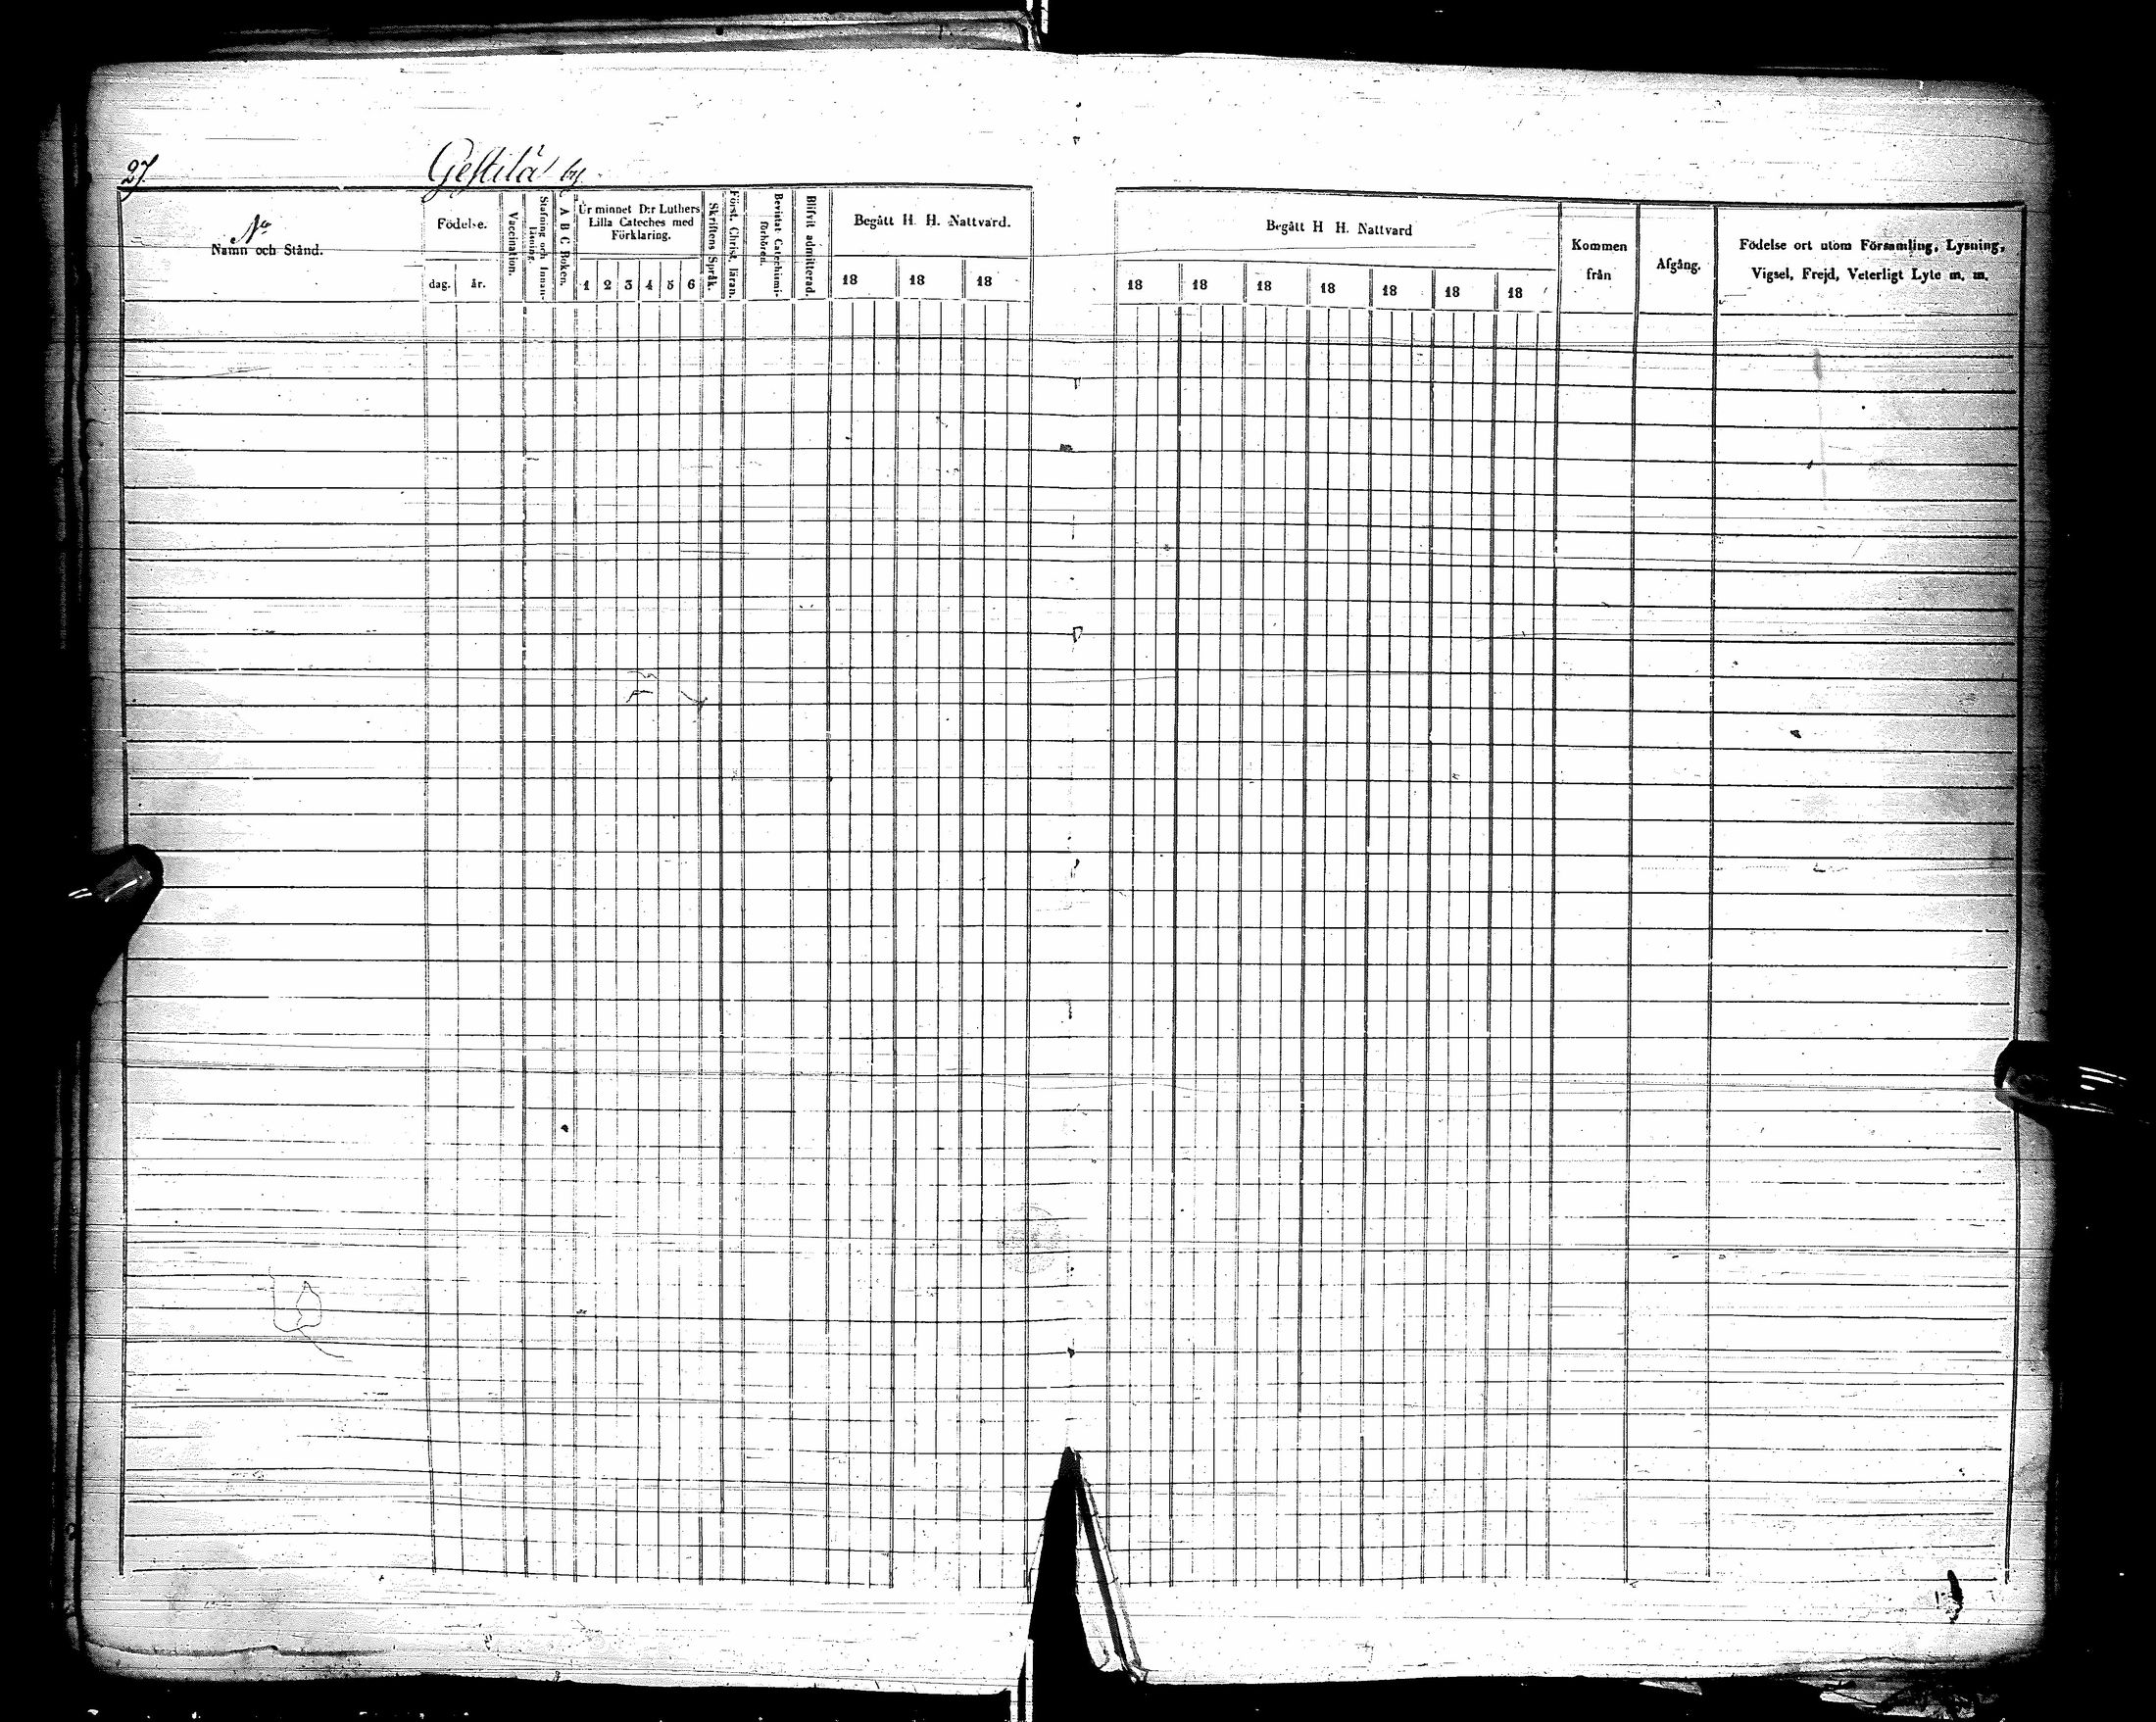 27.
Gestilä by
No
Namn och Stånd.
Födelse.
dag. år.
Vaccination.
Stafning och Innan-
läsning.
A B C Boken.
Ur minnet D:r Luthers
Lilla Cateches med
Förklaring.
1 2 3 4 5 6
Skriftens Språk.
Först. Christ. läran.
Bevistat Catechismi-
förhören.
Blifvit admitterad.
Begått H. H. Nattvard.
18 18 18
Begått H H. Nattvard
18 18 18 18 18 18 18
Kommen
från
Afgång.
Födelse ort utom Församling, Lysning,
Vigsel, Frejd, Veterligt Lyte m. m.